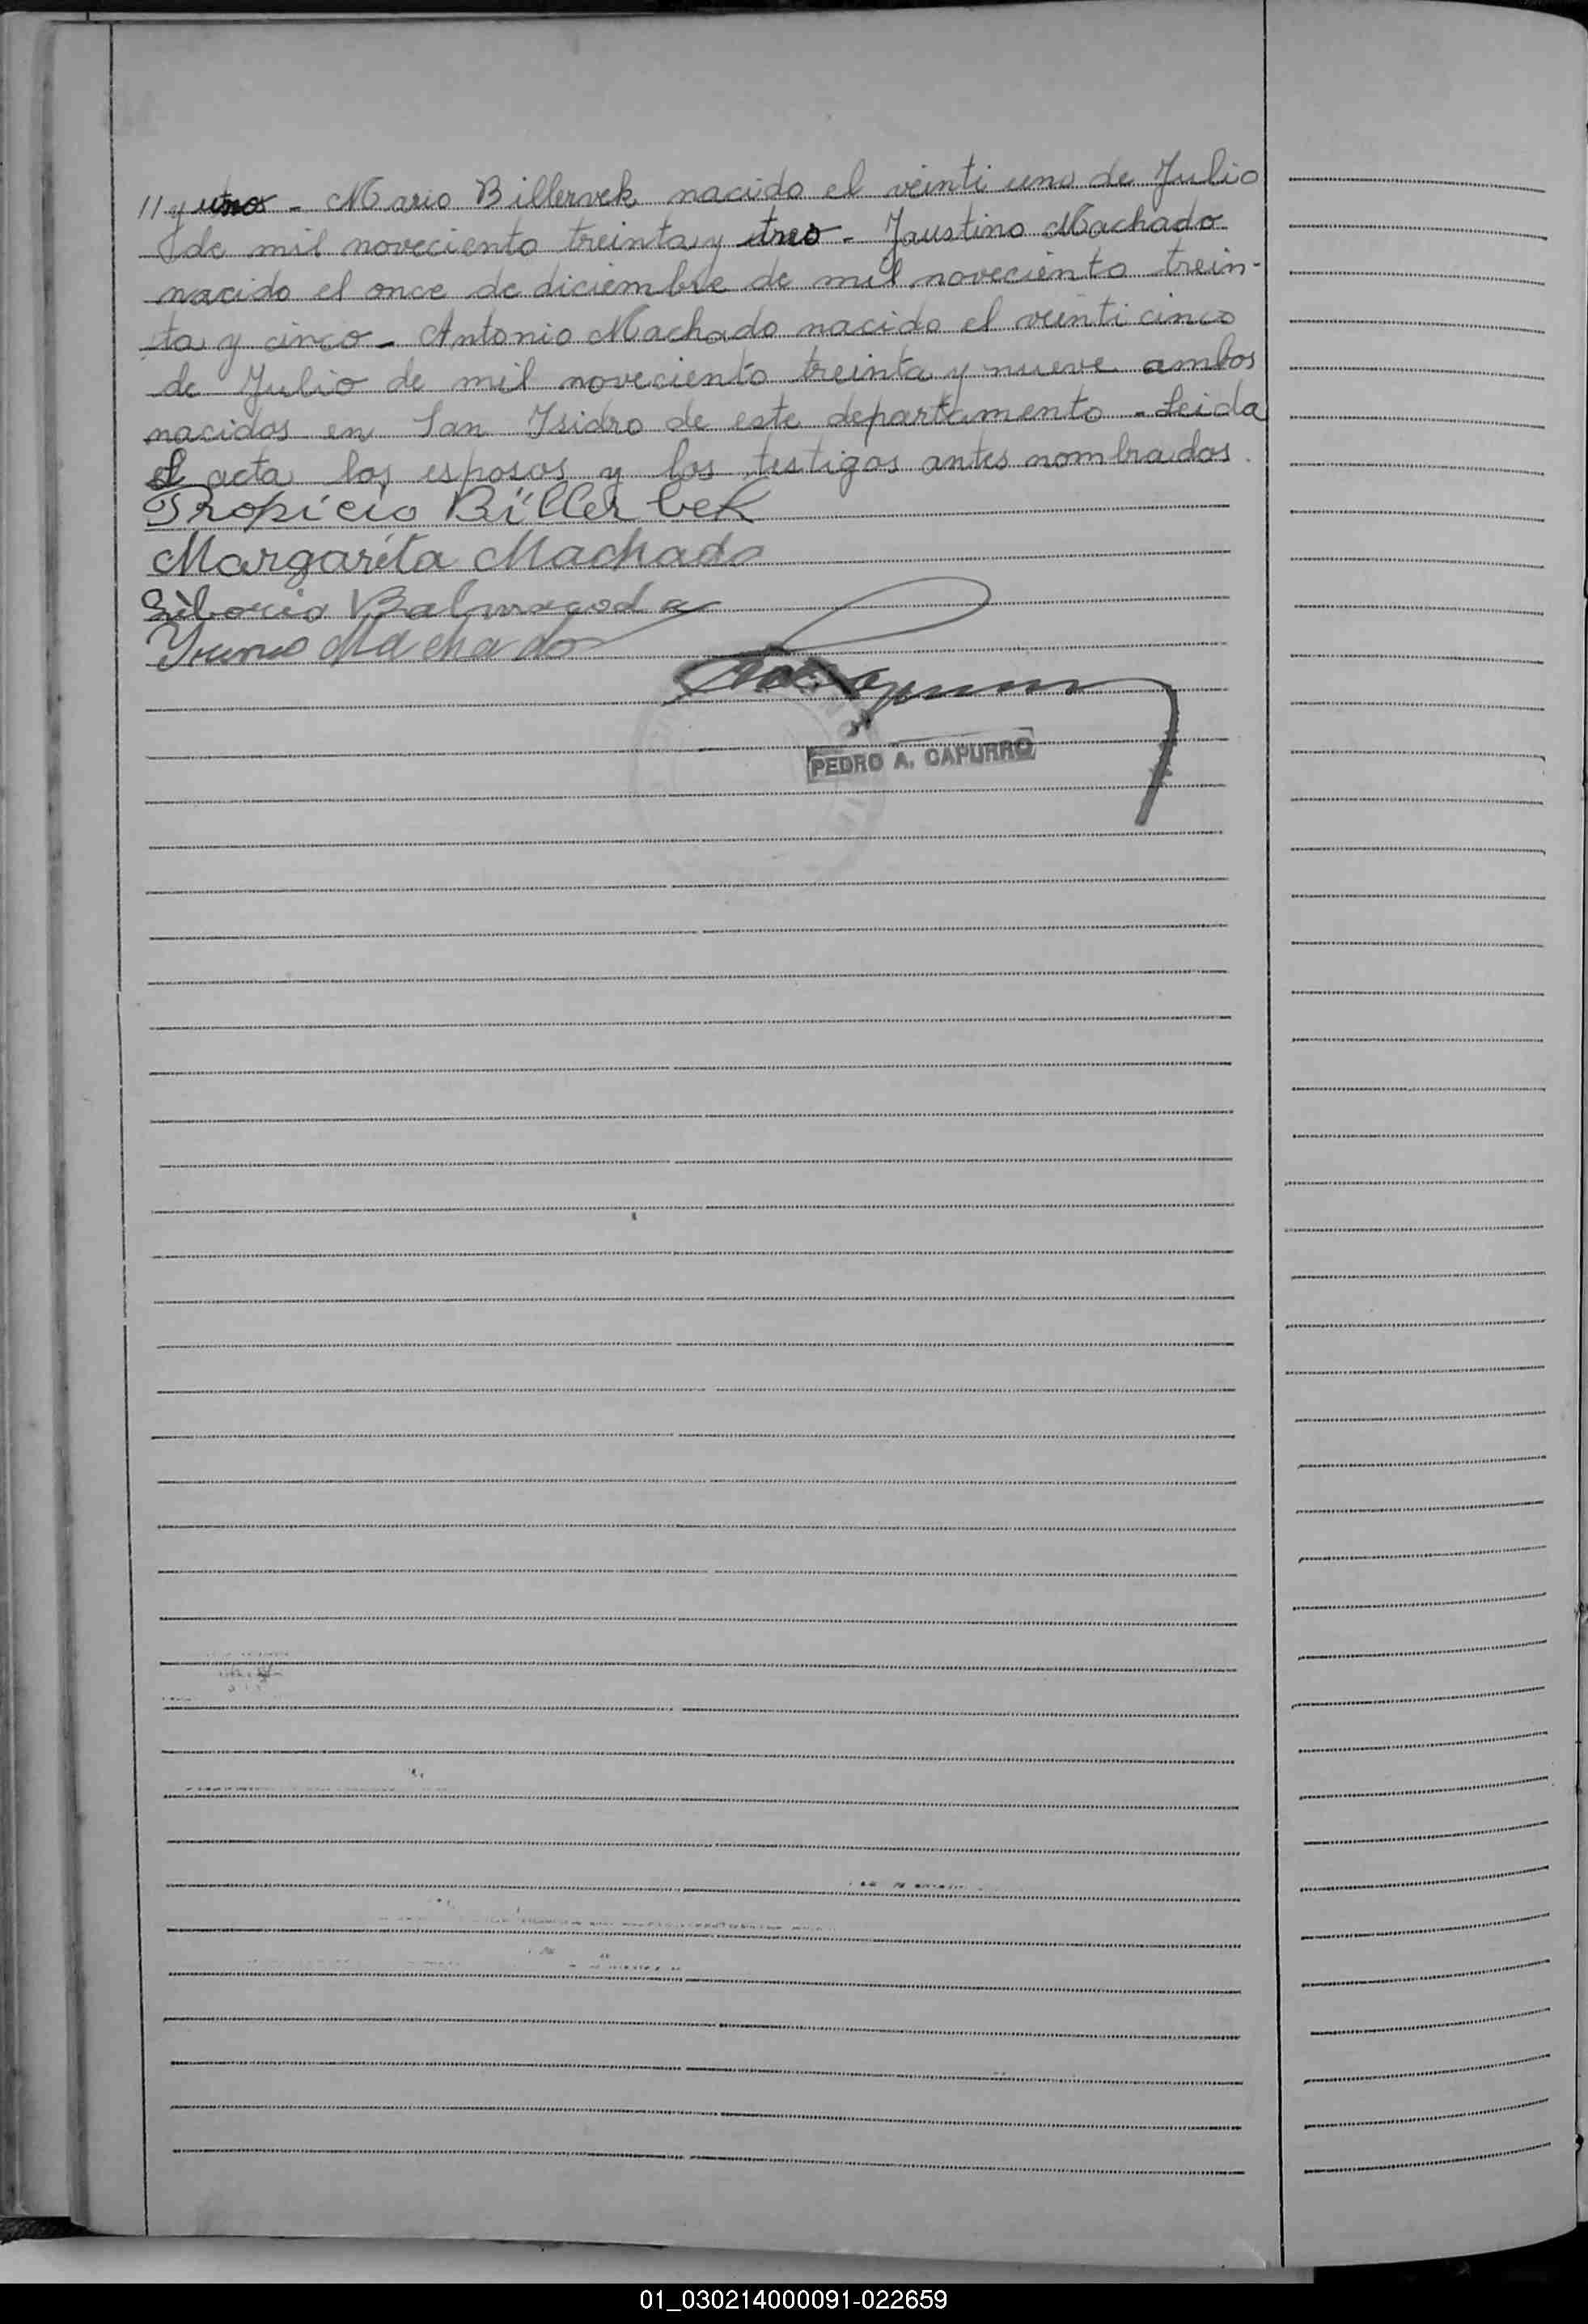 // y uno - Mario Billervek nacido el veinti uno de Julio
de mil noveciento treinta y tres - Faustino Machado
nacido el once de diciembre de mil noveciento trein-
ta y cinco - Antonio Machado nacido el veinti cinco
de Julio de mil noveciento treinta y nueve ambos
nacidos en San Isidro de este departamento - Leida
el acta los esposos y los testigos antes nombrados.
Propicio Billerbek
Margarita Machado
Liborio Balmaceda
Machado
PEDRO A. CAPURRO
01_030214000091-022659